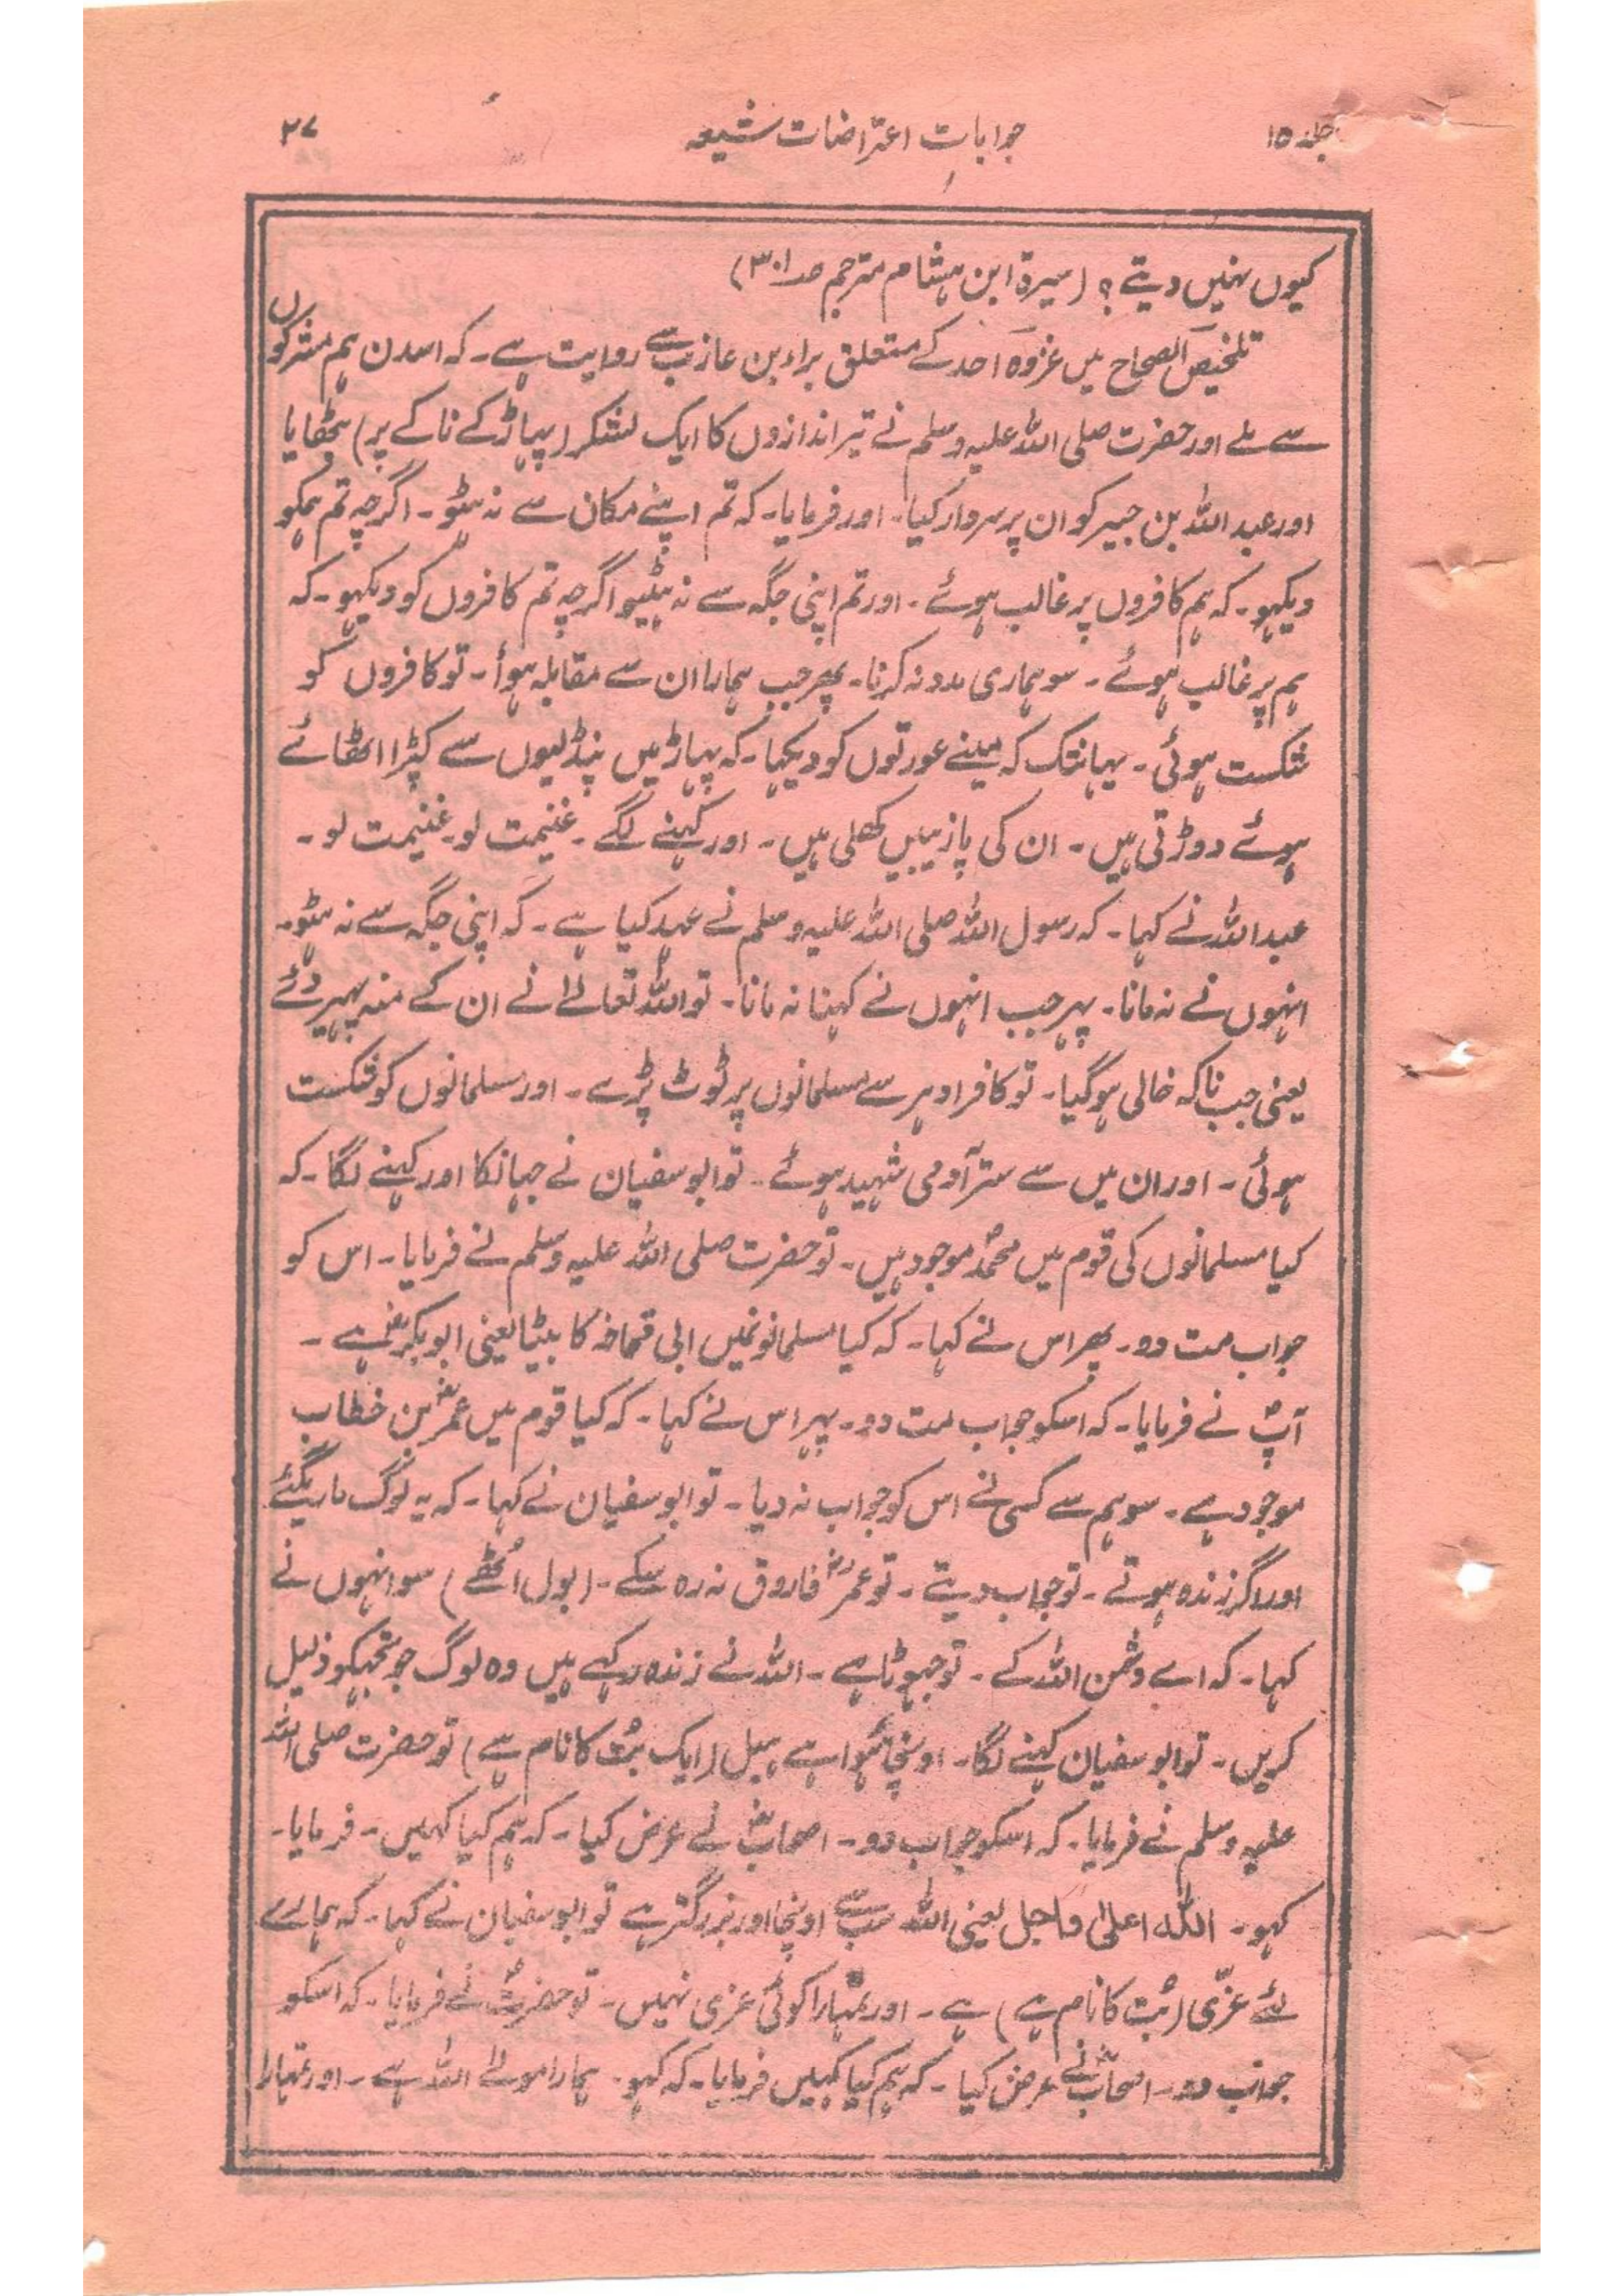 جلد ۱۵ جوابات اعتراضات شیعہ ۲۷
کیوں نہیں دیتے؟ (سیرۃ ابن ہشام مترجم صـ۳۰۱)
تلخیص الصحاح میں غزوہ احد کے متعلق براء بن عازب سے روایت ہے۔ کہ اسدن ہم مشرکوں
سے ملے اور حضرت صلی اللہ علیہ وسلم نے تیر اندازوں کا ایک لشکر (پہاڑ کے ناکے پر) بٹھایا
اور عبد اللہ بن جبیر کو ان پر سردار کیا۔ اور فرمایا۔ کہ تم اپنے مکان سے نہ ہٹو۔ اگرچہ تم ہمکو
دیکہو۔ کہ ہم کافروں پر غالب ہوئے۔ اور تم اپنی جگہ سے نہ ہٹیو اگرچہ تم کافروں کو دیکہو۔ کہ
ہم پر غالب ہوئے۔ سو ہماری مدد نہ کرنا۔ پھر جب ہمارا ان سے مقابلہ ہوأ۔ تو کافروں کو
شکست ہوئی۔ یہانتک کہ مینے عورتوں کو دیکہا۔ کہ پہاڑ میں پنڈلیوں سے کپڑا اٹھائے
ہوئے دوڑتی ہیں۔ ان کی پازیبیں کھلی ہیں۔ اور کہنے لگے۔ غنیمت لو۔ غنیمت لو۔
عبد اللہ نے کہا۔ کہ رسول اللہ صلی اللہ علیہ وسلم نے عہد کیا ہے۔ کہ اپنی جگہ سے نہ ہٹو۔
انہوں نے نہ مانا۔ پہر جب انہوں نے کہنا نہ مانا۔ تو اللہ تعالےٰ نے ان کے منہ پہیر دئے
یعنی جب ناکہ خالی ہو گیا۔ تو کافر ادہر سے مسلمانوں پر ٹوٹ پڑے۔ اور مسلمانوں کو شکست
ہوئی۔ اور ان میں سے ستر آدمی شہید ہوئے۔ تو ابو سفیان نے جہانکا اور کہنے لگا۔ کہ
کیا مسلمانوں کی قوم میں محمدؐ موجود ہیں۔ تو حضرت صلی اللہ علیہ وسلم نے فرمایا۔ اس کو
جواب مت دو۔ پھر اس نے کہا۔ کہ کیا مسلمانونمیں ابی قحافہ کا بیٹا یعنی ابوبکرؓ ہے۔
آپؐ نے فرمایا۔ کہ اسکو جواب مت دو۔ پہر اس نے کہا۔ کہ کیا قوم میں عمرؓ بن خطاب
موجود ہے۔ سو ہم سے کسی نے اس کو جواب نہ دیا۔ تو ابو سفیان نے کہا۔ کہ یہ لوگ مارے گئے
اور اگر زندہ ہوتے۔ تو جواب دیتے۔ تو عمرؓ فاروق نہ رہ سکے۔ (بول اُٹھے) سو انہوں نے
کہا۔ کہ اے دشمن اللہ کے۔ تو جہوٹا ہے۔ اللہ نے زندہ رکہے ہیں وہ لوگ جو تجہکو ذلیل
کریں۔ تو ابو سفیان کہنے لگا۔ اونچا ہُوا ہے ہبل (ایک بُت کا نام ہے) تو حضرت صلی اللہ
علیہ وسلم نے فرمایا۔ کہ اسکو جواب دو۔ اصحابؓ نے عرض کیا۔ کہ ہم کیا کہیں۔ فرمایا۔
کہو۔ اللہ اعلیٰ واجل یعنی اللہ سب سے اونچا اور بزرگتر ہے تو ابو سفیان نے کہا۔ کہ ہمارے
لئے عزّی (بُت کا نام ہے) ہے۔ اور تمہارا کوئی عزی نہیں۔ تو حضرتؐ نے فرمایا۔ کہ اسکو
جواب دو۔ اصحابؓ نے عرض کیا۔ کہ ہم کیا کہیں فرمایا۔ کہ کہو۔ ہمارا مولےٰ اللہ ہے۔ اور تمہارا